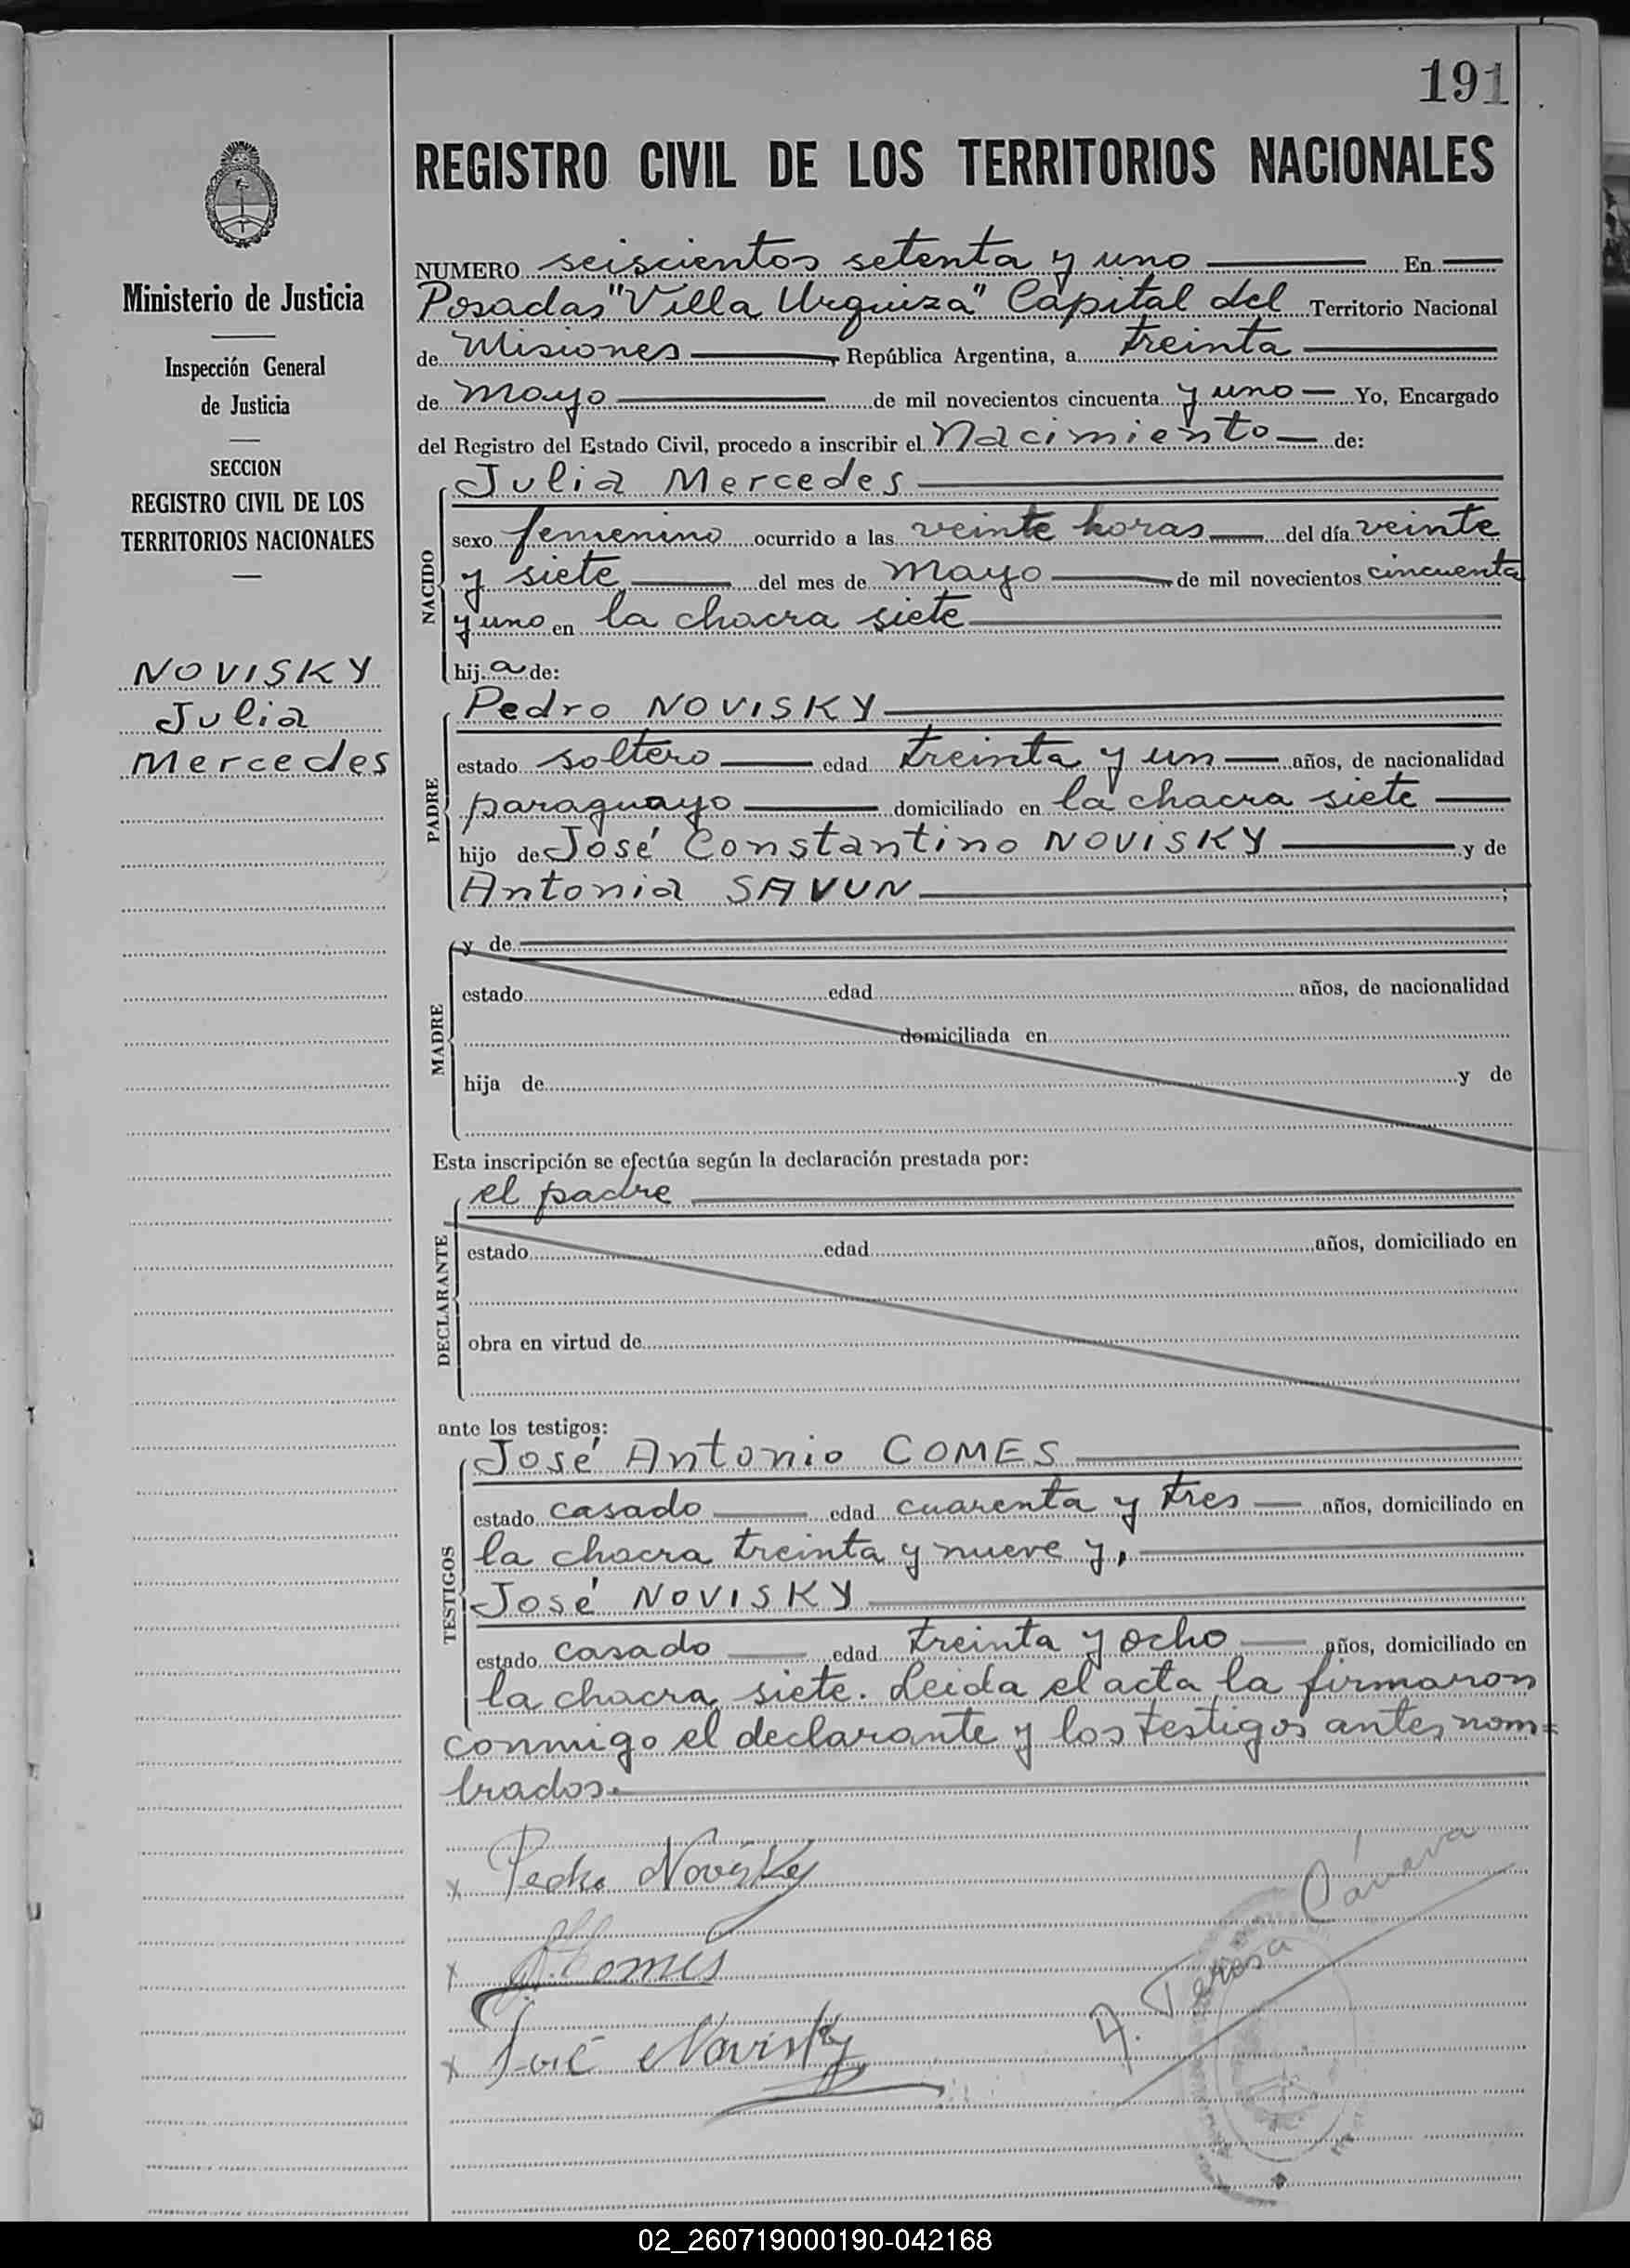 191
REGISTRO CIVIL DE LOS TERRITORIOS NACIONALES
Ministerio de Justicia
Inspección General
de Justicia
SECCION
REGISTRO CIVIL DE LOS
TERRITORIOS NACIONALES
NOVISKY
Julia
Mercedes
NUMERO seiscientos setenta y uno En
Posadas "Villa Urquiza" Capital del Territorio Nacional
de Misiones, República Argentina, a treinta
de mayo de mil novecientos cincuenta y uno Yo, Encargado
del Registro del Estado Civil, procedo a inscribir el Nacimiento de:
NACIDO
Julia Mercedes
sexo femenino ocurrido a las veinte horas del día veinte
y siete del mes de mayo de mil novecientos cincuenta
y uno en la chacra siete
hija de:
PADRE
Pedro NOVISKY
estado soltero edad treinta y un años, de nacionalidad
paraguayo domiciliado en la chacra siete
hijo de José Constantino NOVISKY y de
Antonia SAVUN ;
MADRE
y de
estado edad años, de nacionalidad
domiciliada en
hija de y de
Esta inscripción se efectúa según la declaración prestada por:
DECLARANTE
el padre
estado edad años, domiciliado en
obra en virtud de
ante los testigos:
TESTIGOS
José Antonio COMES
estado casado edad cuarenta y tres años, domiciliado en
la chacra treinta y nueve y,
José NOVISKY
estado casado edad treinta y ocho años, domiciliado en
la chacra siete. Leida el acta la firmaron
conmigo el declarante y los testigos antes nom=
brados.
x Pedro Novisky
x Comes
x José Novisky
A. Teresa
02_260719000190-042168